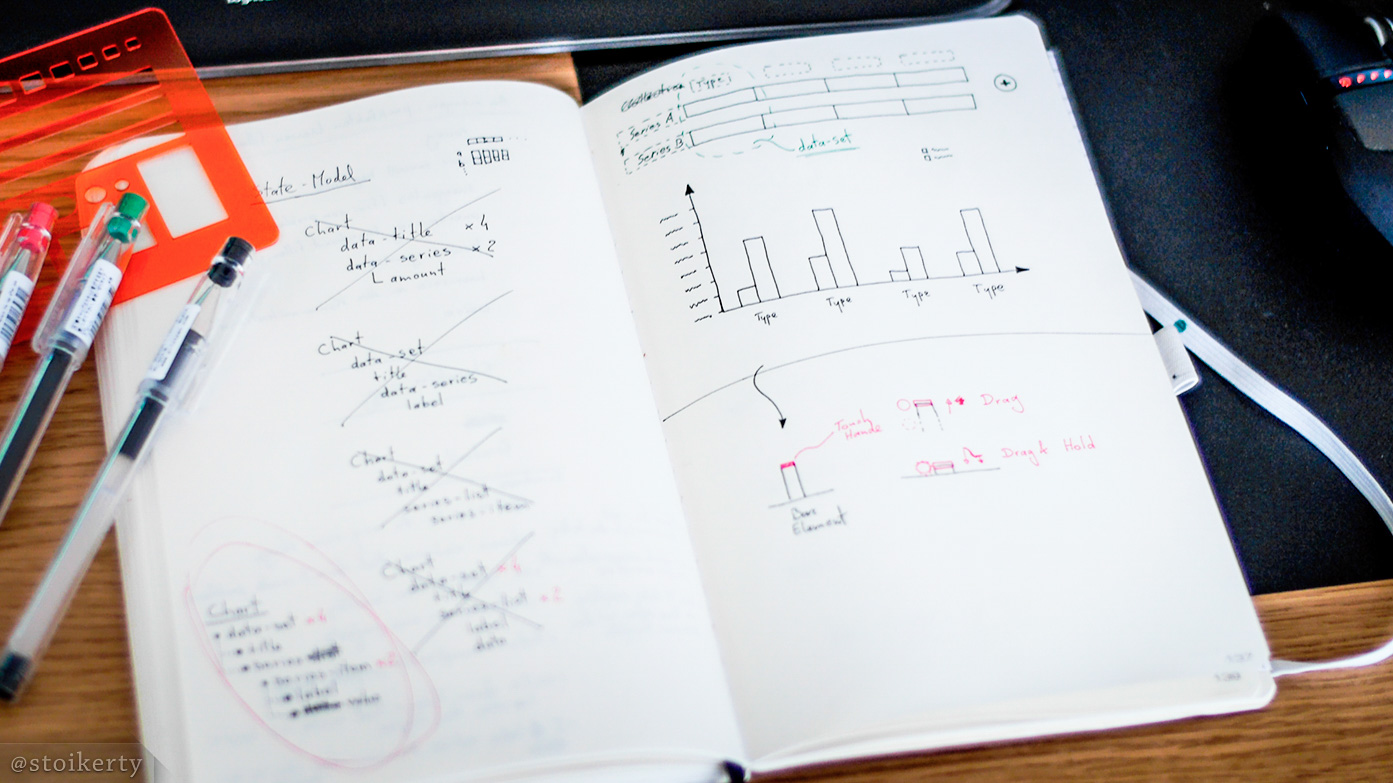 State-Model
Chart
data-title x 4
data-series x 2
L amount
Chart
data-set
title
data-series
label
Chart
data-set
title
series-list
series-item
Chart
data-set x 4
title
series-list x 2
label
data
Chart
data-set x 4
title
series
series-item x 2
label
value
Collection [Type]
Series A
Series B
data-set
Type
Type
Type
Type
Touch
Drag
Drag & Hold
Element
137
138
@stoikerty